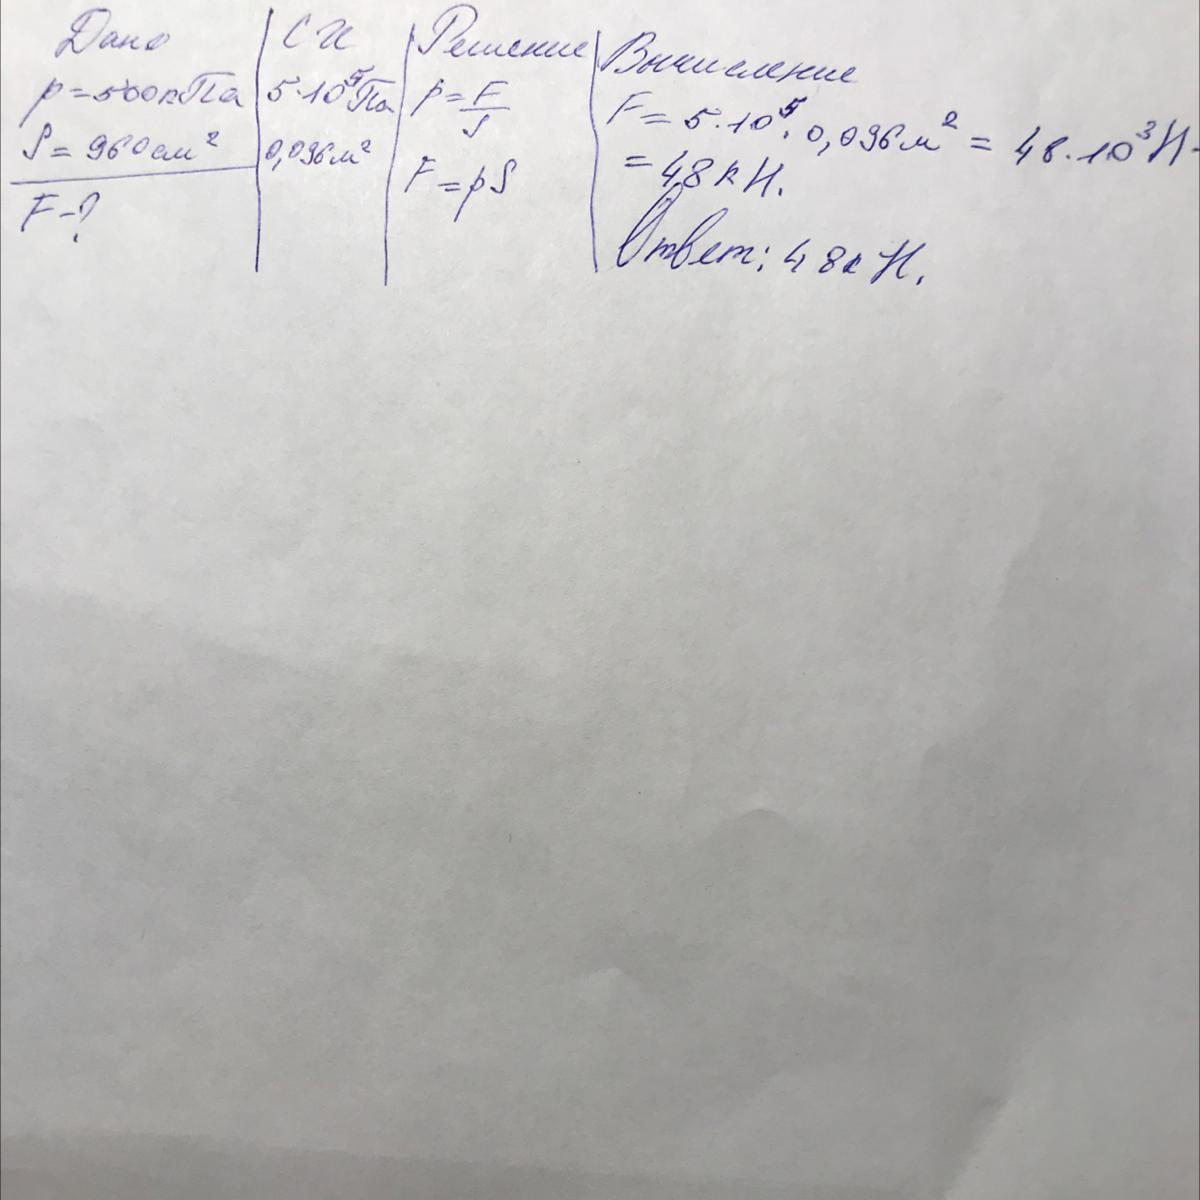 Дано
p=500кПа
S=960см²
F-?
СИ
5·10⁵Па
0,096м²
Решение
p=F/S
F=pS
Вычисление
F=5·10⁵·0,096м²=48·10³Н=
=48кН.
Ответ: 48кН.